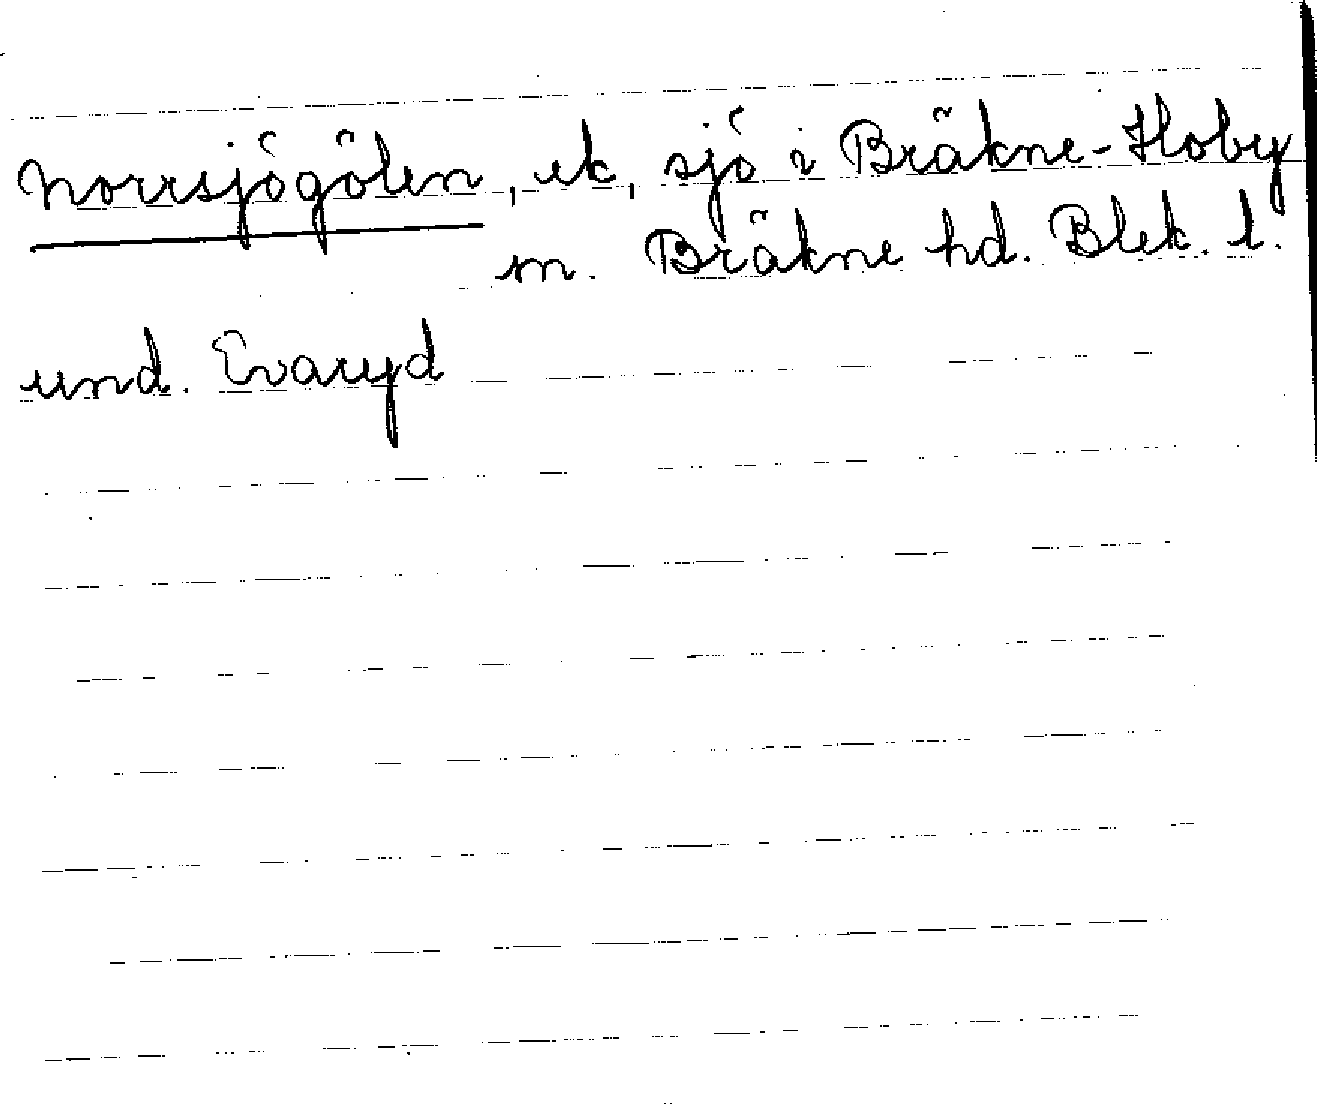 Norrsjögölen, ek, sjö i Bräkne-Hoby
sn. Bräkne hd. Blek. l.
und. Evaryd